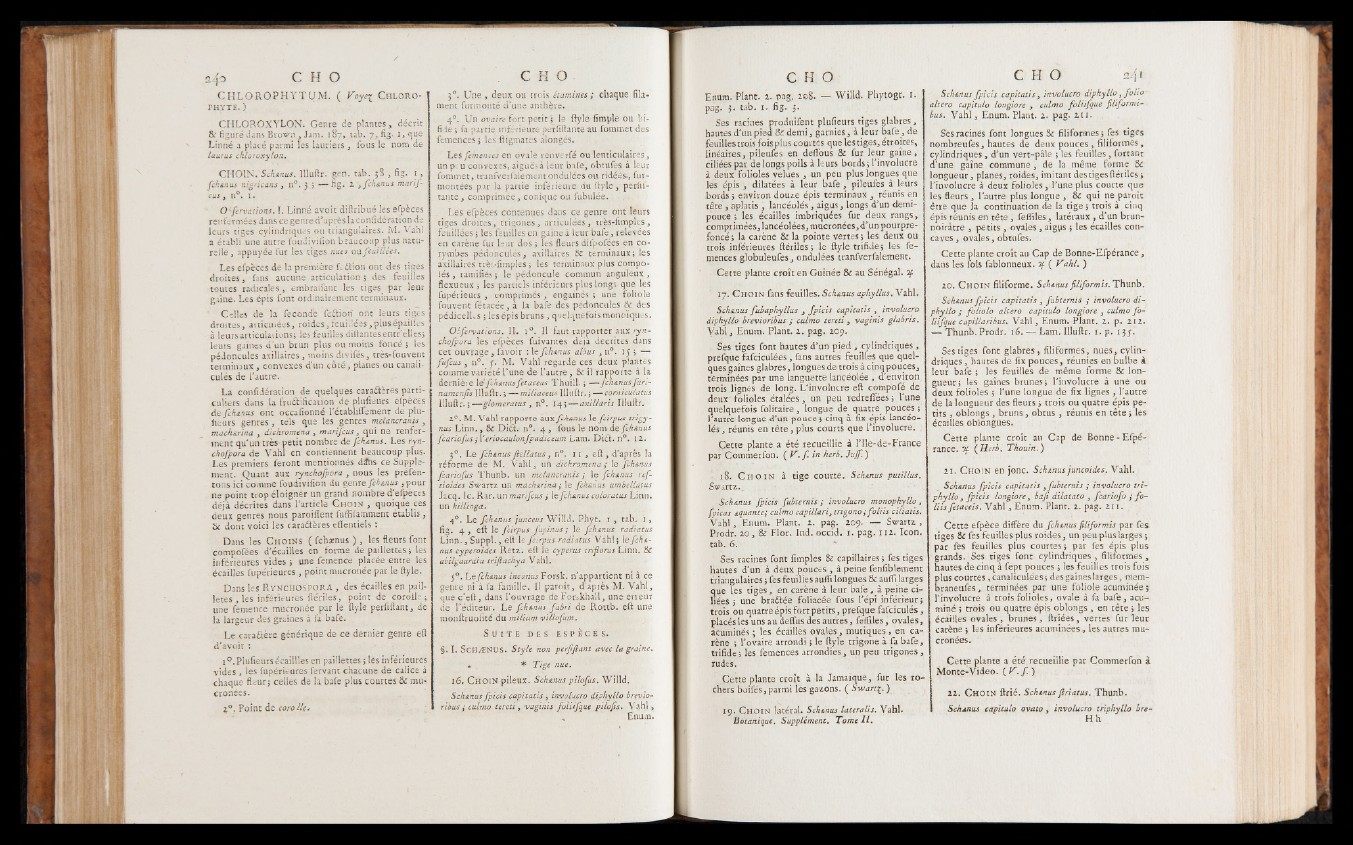 240 C H O
CHLOROPHYTUM. ( Voyez CHLORO-
PHYTE. )
CHLOROXYLON. Genre de plantes, décrit
& figuré dans Brown, Jam. 187, tab. 7, fig. 1, que
Linné a placé parmi les lauriers, ſous le nom de
laurus chloroxylon.
CHOIN. Schœnus. Illuſtr. gen. tab. 38, fig. 1,
ſchœnus nigricans, n°. 3; — fig. 2, ſchœnus mariſ-
cus, n°. 1.
Obſervations. I. Linné avoit diſtribué les eſpèces
renfermées dans ce genre d'après la conſidération de
leurs tiges cylindriques ou triangulaires. M. Vahl
a établi une autre ſoudiviſion beaucoup plus natu-
relle, appuyée ſur les tiges nues ou feuillées.
Les eſpèces de la première ſection ont des tiges
droites, ſans aucune articulation; des feuilles
toutes radicales, embraſſant les tiges par leur
gaîne. Les épis ſont ordinairement terminaux.
Celles de la ſeconde ſection ont leurs tiges
droites, articulées, roides, feuillées, plus épaiſſes
à leurs articulations; les feuilles diſtantes entr'elles;
leurs gaînes d'un brun plus ou moins foncé; les
pédoncules axillaires, moins diviſés, très-ſouvent
terminaux, convexes d'un côté, planes ou canali-
culés de l'autre.
La conſidération de quelques caractères parti-
culiers dans la fructification de pluſieurs eſpèces
de ſchœnus ont occaſionné l'établiſſement de plu-
ſieurs genres, tels que les genres melancranis,
machærina, dichromena, mariſcus, qui ne renfer-
ment qu'un très-petit nombre de ſchœnus. Les ryn-
choſpora de Vahl en contiennent beaucoup plus.
Les premiers ſeront mentionnés dans ce Supplé-
ment. Quant aux rynchoſpora, nous les préſen-
tons ici comme ſoudiviſion du genre ſchœnus, pour
ne point trop éloigner un grand nombre d'eſpèces
déjà décrites dans l'article CHOIN, quoique ces
deux genres nous paroiſſent ſuffiſamment établis,
& dont voici les caractères eſſentiels :
Dans les CHOINS ( ſchœnus ), les fleurs ſont
compoſées d'écailles en forme de paillettes; les
inférieures vides; une ſemence placée entre les
écailles ſupérieures, point mucronée par le ſtyle.
Dans les RYNCHOSPORA, des écailles en pail-
lettes, les inférieures ſtériles, point de corolle;
une ſemence mucronée par le ſtyle perſiſtant, de
la largeur des graines à ſa baſe.
Le caractère générique de ce dernier genre eſt
d'avoir :
1°. Pluſieurs écailles en paillettes; les inférieures
vides, les ſupérieures ſervant chacune de calice à
chaque fleur; celles de la baſe plus courtes & mu-
cronées.
2°. Point de corolle.
C H O
3°. Une, deux ou trois étamines; chaque fila-
ment ſurmonté d'une anthère.
4°. Un ovaire fort petit; le ſtyle ſimple ou bi-
fide; ſa partie inférieure perſiſtante au ſommet des
ſemences; les ſtigmates alongés.
Les ſemences en ovale renverſé ou lenticulaires,
un peu convexes, aiguës à leur baſe, obtuſes à leur
ſommet, tranſverſalement ondulées ou ridées, ſur-
montées par la partie inférieure du ſtyle, perſiſ-
tante, comprimée, conique ou ſubulée.
Les eſpèces contenues dans ce genre ont leurs
tiges droites, trigones, articulées, très-ſimples,
feuillées; les feuilles en gaîne à leur baſe, relevées
en carène ſur leur dos; les fleurs diſpoſées en co-
rymbes pédonculés, axillaires & terminaux; les
axillaires très-ſimples; les terminaux plus compo-
ſés, ramifiés; le pédoncule commun anguleux,
flexueux; les partiels inférieurs plus longs que les
ſupérieurs, comprimés, engaînés; une foliole
ſouvent ſétacée, à la baſe des pédoncules & des
pédicelles; les épis bruns, quelquefois monoïques.
Obſervations. II. 1°. Il faut rapporter aux ryn-
choſpora les eſpèces ſuivantes déjà décrites dans
cet ouvrage, ſavoir : le ſchœnus albus, n°. 15; —
fuſcus, n°. 5. M. Vahl regarde ces deux plantes
comme variété l'une de l'autre, & il rapporte à la
dernière le ſchœnus ſetaceus Thuill.; — ſchœnus ſuri-
namenſis Illuſtr.; — miliaceus Illuſtr.; — corniculatus
Illuſtr.; — glomeratus, n°. 14; — axillaris Illuſtr.
2°. M. Vahl rapporte aux ſchœnus le ſcirpus trigy-
nus Linn., & Dict. n°. 4, ſous le nom de ſchœnus
ſcarioſus; l'eriocaulon ſpadiceum Lam. Dict. n°. 12.
3°. Le ſchœnus ſtellatus, n°. 11, eſt, d'après la
réforme de M. Vahl, un dichromena; le ſchœnus
ſcarioſus Thunb. un melancranis; le ſchœnus reſ-
tioides Swartz un machærina; le ſchœnus umbellatus
Jacq. Ic. Rar. un mariſcus; le ſchœnus coloratus Linn.
un killinga.
4°. Le ſchœnus junceus Willd. Phyt. 1, tab. 1,
fig. 4, eſt le ſcirpus ſupinus; le ſchœnus radiatus
Linn., Suppl., eſt le ſcirpus radiatus Vahl; le ſchœ-
nus cyperoides Retz. eſt le cyperus triflorus Linn. &
abilguardia triſtachya Vahl.
5°. Le ſchœnus incanus Forsk. n'appartient ni à ce
genre ni à ſa famille. Il paroît, d'après M. Vahl,
que c'eſt, dans l'ouvrage de Forskhall, une erreur
de l'éditeur. Le ſchœnus fabri de Rottb. eſt une
monſtruoſité du milium villoſum.
SUITE DES ESPÈCES.
§. I. SCHÆNUS. Style non perſiſtant avec la graine.
* Tige nue.
16. CHOIN pileux. Schœnus piloſus. Willd.
Schœnus ſpicis capitatis, involucro diphyllo brevio-
ribus; culmo tereti, vaginis foliiſque piloſis. Vahl,
Enum.
C H O
Enum. Plant. 2. pag. 208. — Willd. Phytogr. 1.
pag. 3. tab. 1. fig. 3.
Ses racines produiſent pluſieurs tiges glabres,
hautes d'un pied & demi, garnies, à leur baſe, de
feuilles trois fois plus courtes que les tiges, étroites,
linéaires, pileuſes en deſſous & ſur leur gaîne,
ciliées par de longs poils à leurs bords; l'involucre
à deux folioles velues, un peu plus longues que
les épis, dilatées à leur baſe, pileuſes à leurs
bords; environ douze épis terminaux, réunis en
tête, aplatis, lancéolés, aigus, longs d'un demi-
pouce; les écailles imbriquées ſur deux rangs,
comprimées, lancéolées, mucronées, d'un pourpre-
foncé; la carène & la pointe vertes; les deux ou
trois inférieures ſtériles; le ſtyle trifide; les ſe-
mences globuleuſes, ondulées tranſverſalement.
Cette plante croît en Guinée & au Sénégal. ♃
17. CHOIN ſans feuilles. Schœnus aphyllus. Vahl.
Schœnus ſubaphyllus, ſpicis capitatis, involucro
diphyllo brevioribus; culmo tereti, vaginis glabris.
Vahl, Enum. Plant. 2. pag. 209.
Ses tiges ſont hautes d'un pied, cylindriques,
preſque faſciculées, ſans autres feuilles que quel-
ques gaînes glabres, longues de trois à cinq pouces,
terminées par une languette lancéolée, d'environ
trois lignes de long. L'involucre eſt compoſé de
deux folioles étalées, un peu redreſſées; l'une
quelquefois ſolitaire, longue de quatre pouces;
l'autre longue d'un pouce; cinq à ſix épis lancéo-
lés, réunis en tête, plus courts que l'involucre.
Cette plante a été recueillie à l'Ile-de-France
par Commerſon. ( V. ſ. in herb. Juſſ. )
18. CHOIN à tige courte. Schœnus puſillus.
Swartz.
Schœnus ſpicis ſubternis; involucro monophyllo,
ſpicas æquante; culmo capillari, trigono; foliis ciliatis.
Vahl, Enum. Plant. 2. pag. 209. — Swartz,
Prodr. 20, & Flor. Ind. occid. 1. pag. 112. Icon.
tab. 6.
Ses racines ſont ſimples & capillaires; ſes tiges
hautes d'un à deux pouces, à peine ſenſiblement
triangulaires; ſes feuilles auſſi longues & auſſi larges
que les tiges, en carène à leur baſe, à peine ci-
liées; une bractée foliacée ſous l'épi inférieur;
trois ou quatre épis fort petits, preſque faſciculés,
placés les uns au deſſus des autres, ſeſſiles, ovales,
acuminés; les écailles ovales, mutiques, en ca-
rène; l'ovaire arrondi; le ſtyle trigone à ſa baſe,
trifide; les ſemences arrondies, un peu trigones,
rudes.
Cette plante croît à la Jamaïque, ſur les ro-
chers boiſés, parmi les gazons. ( Swartz. )
19. CHOIN latéral. Schœnus lateralis. Vahl.
Botanique. Supplément. Tome II.
C H O 241
Schœnus ſpicis capitatis, involucro diphyllo, folio
altero capitulo longiore, culmo foliiſque filiformi-
bus. Vahl, Enum. Plant. 2. pag. 211.
Ses racines ſont longues & filiformes; ſes tiges
nombreuſes, hautes de deux pouces, filiformes,
cylindriques, d'un vert-pâle; les feuilles, ſortant
d'une gaîne commune, de la même forme &
longueur, planes, roides, imitant des tiges ſtériles;
l'involucre à deux folioles, l'une plus courte que
les fleurs, l'autre plus longue, & qui ne paroît
être que la continuation de la tige; trois à cinq
épis réunis en tête, ſeſſiles, latéraux, d'un brun-
noirâtre, petits, ovales, aigus; les écailles con-
caves, ovales, obtuſes.
Cette plante croît au Cap de Bonne-Eſpérance,
dans les ſols ſablonneux. ♃ ( Vahl. )
20. CHOIN filiforme. Schœnus filiformis. Thunb.
Schœnus ſpicis capitatis, ſubternis; involucro di-
phyllo; foliolo altero capitulo longiore, culmo fo-
liiſque capillaribus. Vahl, Enum. Plant. 2. p. 212.
— Thunb. Prodr. 16. — Lam. Illuſtr. 1. p. 135.
Ses tiges ſont glabres, filiformes, nues, cylin-
driques, hautes de ſix pouces, réunies en bulbe à
leur baſe; les feuilles de même forme & lon-
gueur; les gaînes brunes; l'involucre à une ou
deux folioles; l'une longue de ſix lignes, l'autre
de la longueur des fleurs; trois ou quatre épis pe-
tits, oblongs, bruns, obtus, réunis en tête; les
écailles oblongues.
Cette plante croît au Cap de Bonne-Eſpé-
rance. ♃ ( Herb. Thouin. )
21. CHOIN en jonc. Schœnus juncoides. Vahl.
Schœnus ſpicis capitatis, ſubternis; involucro tri-
phyllo, ſpicis longiore, baſi dilatato, ſcarioſo; fo-
liis ſetaceis. Vahl, Enum. Plant. 2. pag. 211.
Cette eſpèce diffère du ſchœnus filiformis par ſes
tiges & ſes feuilles plus roides, un peu plus larges;
par ſes feuilles plus courtes; par ſes épis plus
grands. Ses tiges ſont cylindriques, filiformes,
hautes de cinq à ſept pouces; les feuilles trois fois
plus courtes, canaliculées; des gaînes larges, mem-
braneuſes, terminées par une foliole acuminée;
l'involucre à trois folioles, ovale à ſa baſe, acu-
miné; trois ou quatre épis oblongs, en tête; les
écailles ovales, brunes, ſtriées, vertes ſur leur
carène; les inférieures acuminées, les autres mu-
cronées.
Cette plante a été recueillie par Commerſon à
Monte-Video. ( V. ſ. )
22. CHOIN ſtrié. Schœnus ſtriatus. Thunb.
Schœnus capitulo ovato, involucro triphyllo bre-
H h